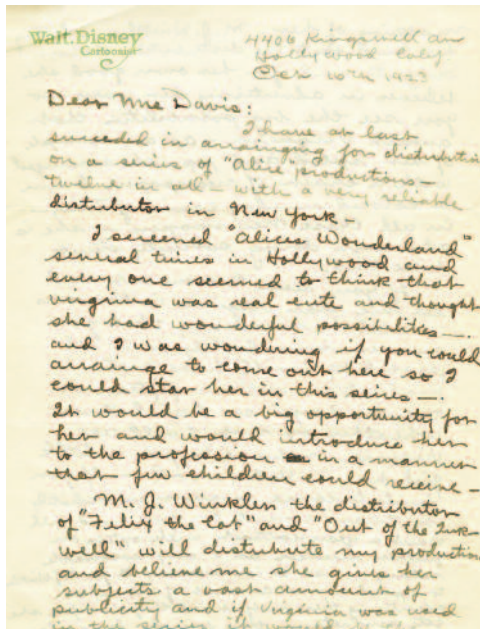 Walt. Disney
Cartoonist
4406 Kingswell Ave
Hollywood Calif
Oct 16th 1923
Dear Mrs Davis:
I have at last
succeeded in arrainging for distribution
on a series of "Alice productions —
twelve in all — with a very reliable
distrubutor in New York —
I screened "Alices Wonderland"
several times in Hollywood and
every one seemed to think that
virginia was real cute and thought
she had wonderful possibilities —.
and I was wondering if you would
arrainge to come out here so I
could star her in this seires —.
It would be a big opportunity for
her and would introduce her
to the profession in a manner
that few children could receive —
M. J. Winkler the distributor
of "Felix the Cat" and "Out of the Ink-
well" will distubute my productions
and believe me she gives her
subjects a vast amount of
publicity and if Virginia was used
in the series it would be the